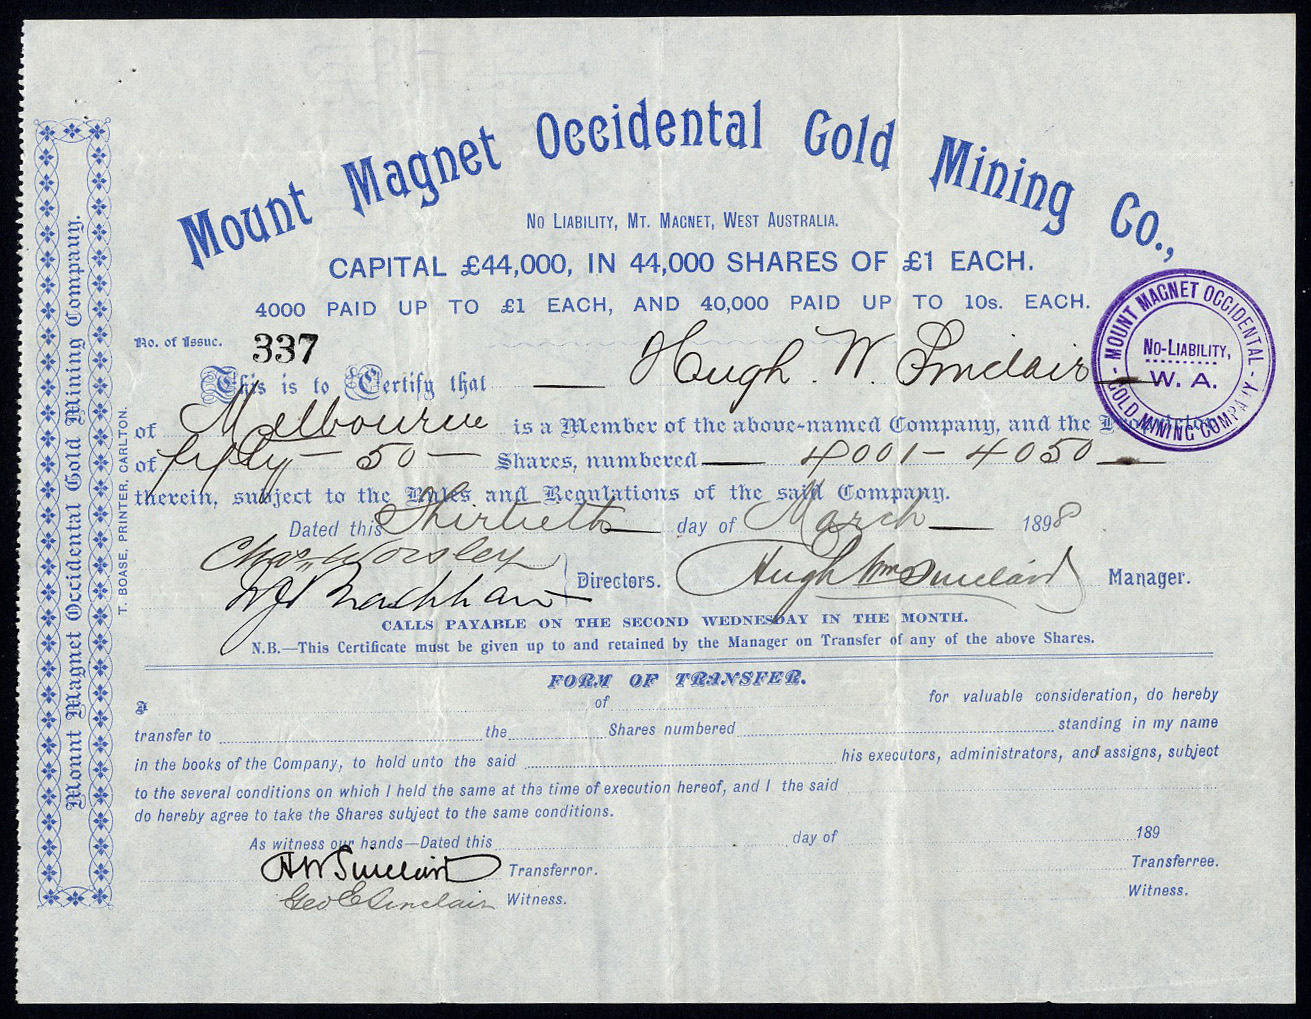 Mount Magnet Occidental Gold Mining Co.,
No Liability, Mt. Magnet, West Australia.
CAPITAL £44,000, IN 44,000 SHARES OF £1 EACH.
4000 PAID UP TO £1 EACH, AND 40,000 PAID UP TO 10s. EACH.
No. of Issue. 337
This is to Certify that — Hugh. W. Sinclair —
of Melbourne is a Member of the above-named Company, and the Proprietor
of fifty — 50 — Shares, numbered — 4001 - 4050 —
therein, subject to the Rules and Regulations of the said Company.
Dated this Thirtieth — day of March — 1898
Chas. Worsley
Directors. Hugh Wm Sinclair Manager.
CALLS PAYABLE ON THE SECOND WEDNESDAY IN THE MONTH.
N.B.—This Certificate must be given up to and retained by the Manager on Transfer of any of the above Shares.
FORM OF TRANSFER.
I of for valuable consideration, do hereby
transfer to the Shares numbered standing in my name
in the books of the Company, to hold unto the said his executors, administrators, and assigns, subject
to the several conditions on which I held the same at the time of execution hereof, and I the said
do hereby agree to take the Shares subject to the same conditions.
As witness our hands—Dated this day of 189
H W Sinclair Transferror. Transferree.
Geo E Sinclair Witness. Witness.
Mount Magnet Occidental Gold Mining Company.
T. BOASE, PRINTER, CARLTON.
MOUNT MAGNET OCCIDENTAL
GOLD MINING COMPANY
No-Liability,
W. A.